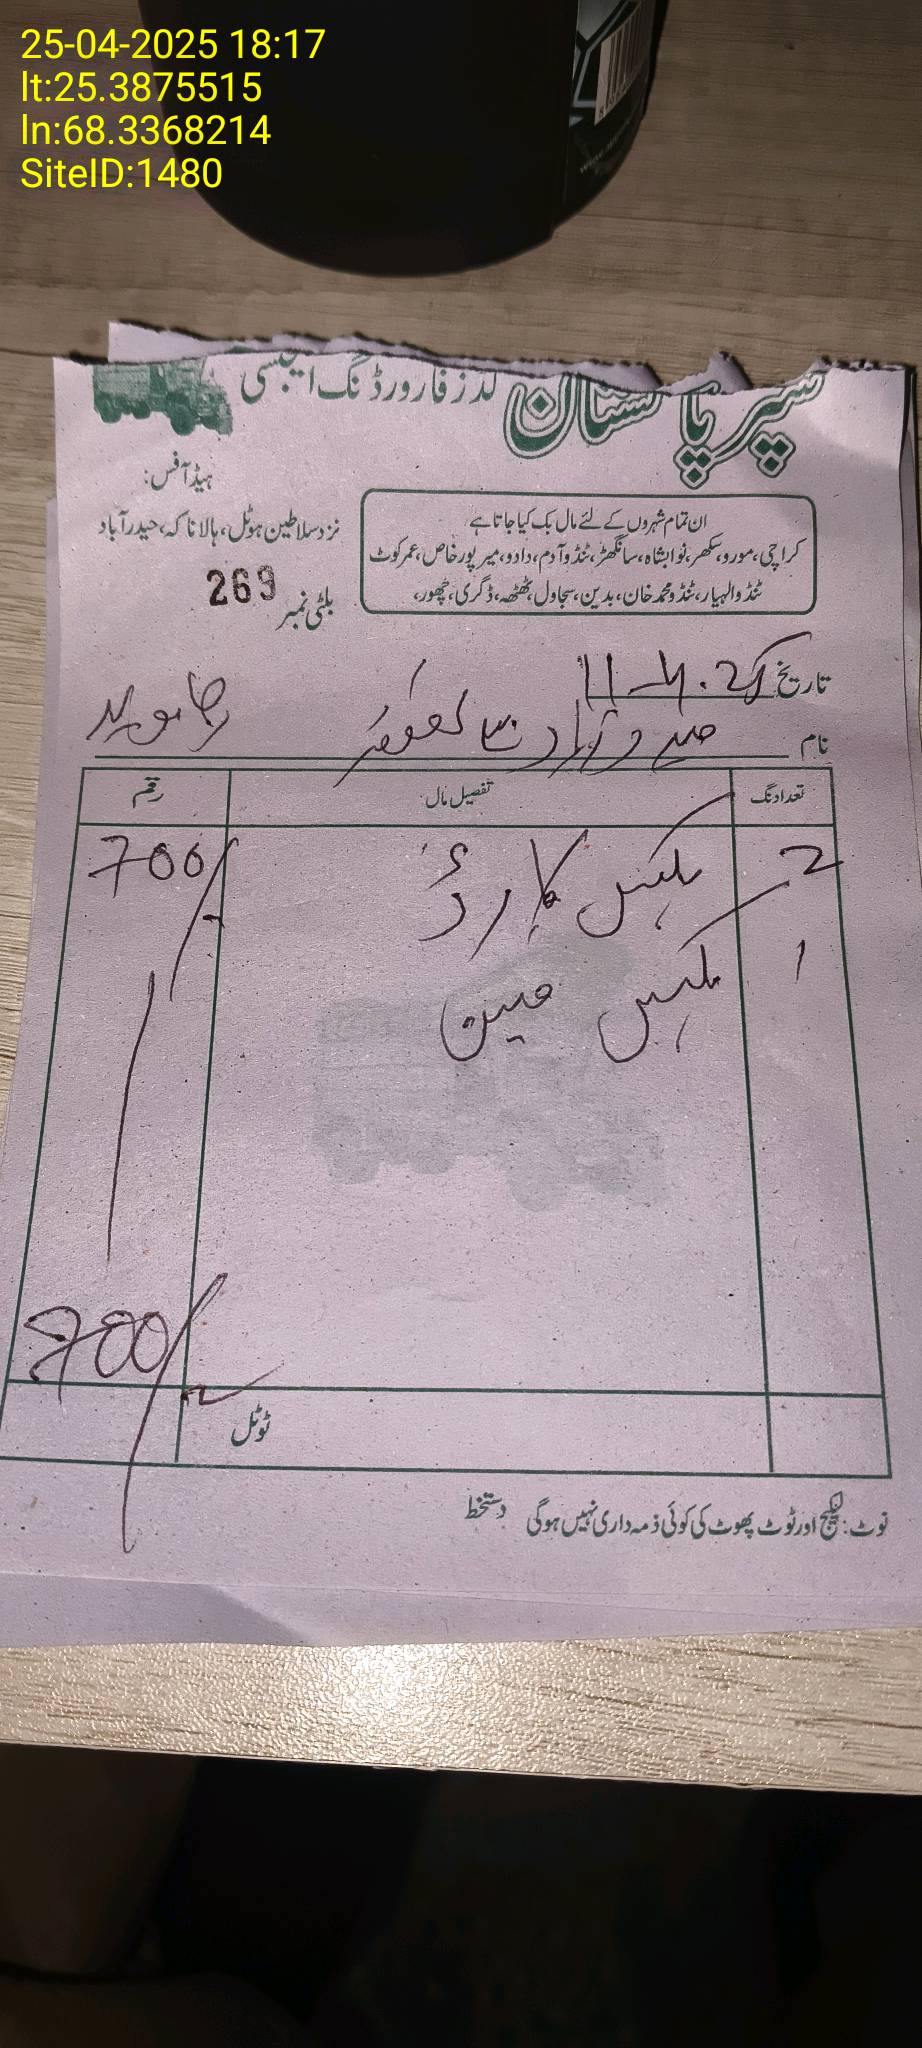 25-04-2025 18:17
lt:25.3875515
ln:68.3368214
SiteID:1480
سپر پاکستان گڈز فارورڈنگ ایجنسی
ہیڈ آفس:
نزد سلاطین ہوٹل، ہالا ناکہ، حیدرآباد
ان تمام شہروں کے لئے مال بک کیا جاتا ہے
کراچی، مورو، سکھر، نوابشاہ، سانگھڑ، ٹنڈوآدم، دادو، میرپورخاص، عمرکوٹ
ٹنڈوالہیار، ٹنڈو محمد خان، بدین، سجاول، ٹھٹھہ، ڈگری، چھور،
بلٹی نمبر 269
تاریخ 11-4-25
نام
تعداد نگ تفصیل مال رقم
2 بکس کارڈ 700/-
1 بکس
700/-
ٹوٹل
نوٹ: لیکیج اور ٹوٹ پھوٹ کی کوئی ذمہ داری نہیں ہوگی دستخط